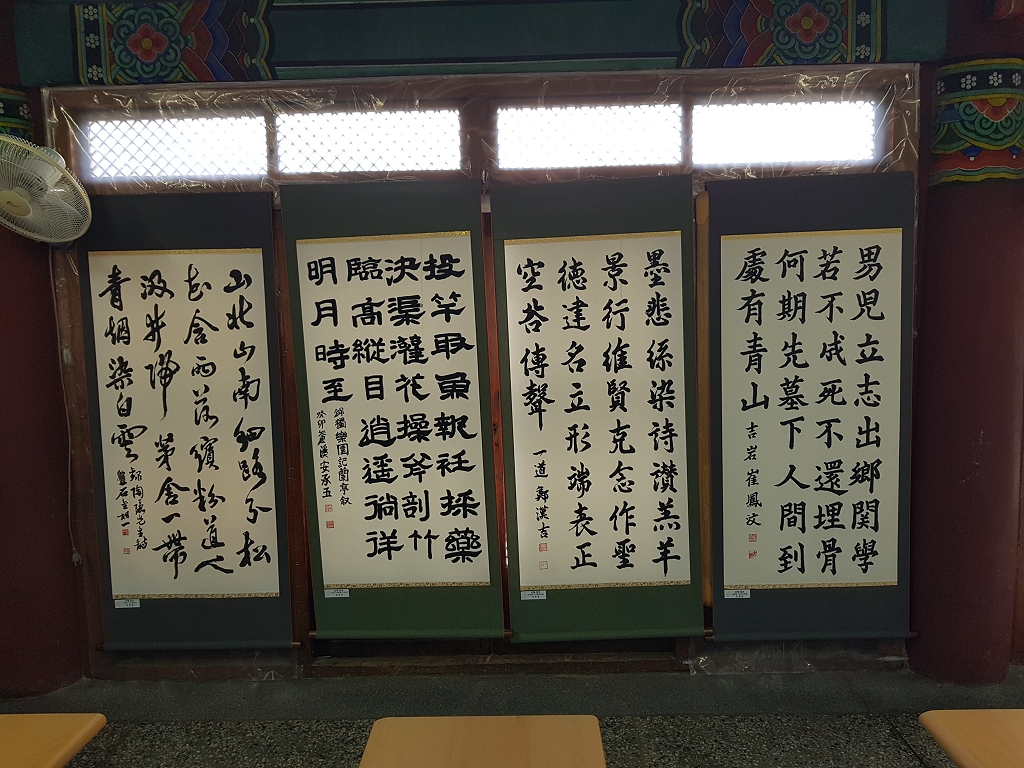 男児立志出鄉関學
若不成死不還埋骨
何期先墓下人間到
處有青山
吉岩 崔鳳汶
墨悲絲染詩讚羔羊
景行維賢克念作聖
德建名立形端表正
空谷傳聲
一道 鄭漢吉
投竿取魚執衽採藥
決渠灌花操斧剖竹
臨高縱目逍遙徜徉
明月時至
錄獨樂園記蘭亭叙
癸卯夏 安承五
山北山南細路分松
花含雨落繽粉道人
汲井歸茅舍一帶
青烟染白雲
錄陶隱先生詩
盤石